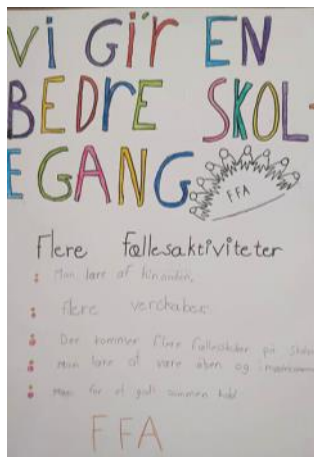 Vi Gi'r EN
BEDrE SKOL-
EGANG
FFA
Flere fællesaktiviteter
Man lære af hinanden.
flere venskaber
Der kommer flere fællesskaber på skolen
Man lære at være åben og
Man får et godt sammen hold
FFA